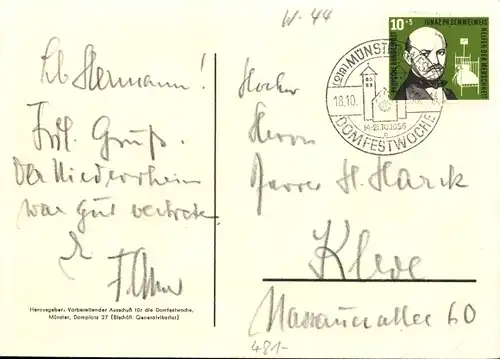 W-44
Lb Hermann!
Frdl. Gruß.
Der Niederrhein
war gut vertreten.
Herausgeber: Vorbereitender Ausschuß für die Domfestwoche,
Münster, Domplatz 27 (Bischöfl. Generalvikariat)
10+5
IGNAZ PH. SEMMELWEIS
HELFER DER MENSCHHEIT
DEUTSCHE BUNDESPOST
(21a) MÜNSTER
18.10.
14-21.10.1956
DOMFESTWOCHE
Herrn
H. Harck
Kleve
Nassauerallee 60
481-